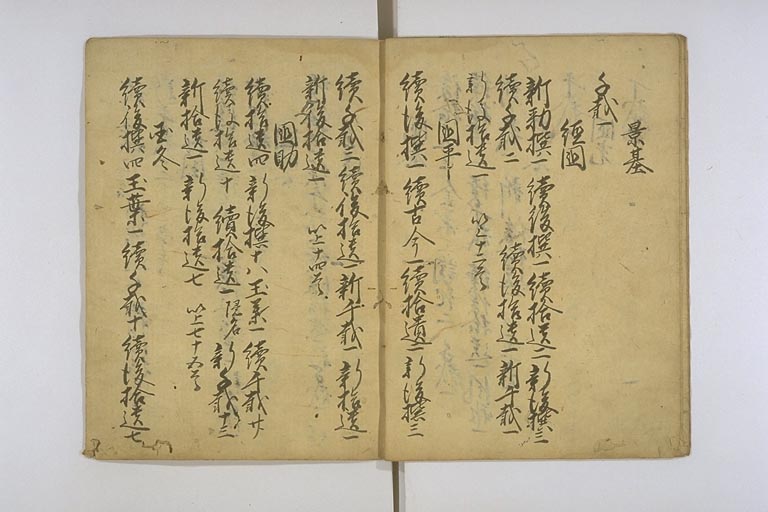 景基
千載一
経国
新勅撰二 続後撰一 続拾遺二 新後撰三
続千載二 続後拾遺一 新千載一
新拾遺一 以上十二首
国平
続後撰一 続古今一 続拾遺二 新後撰三
続千載二 続後拾遺一 新千載一 新拾遺一
新後拾遺一 以上十四首
国助
続拾遺四 新後撰十八 玉葉一 続千載廿
続後拾遺十 続拾遺一 隠名 新千載十三
新拾遺一 新後拾遺七 以上七十五首
国冬
続後撰四 玉葉一 続千載十 続後拾遺七